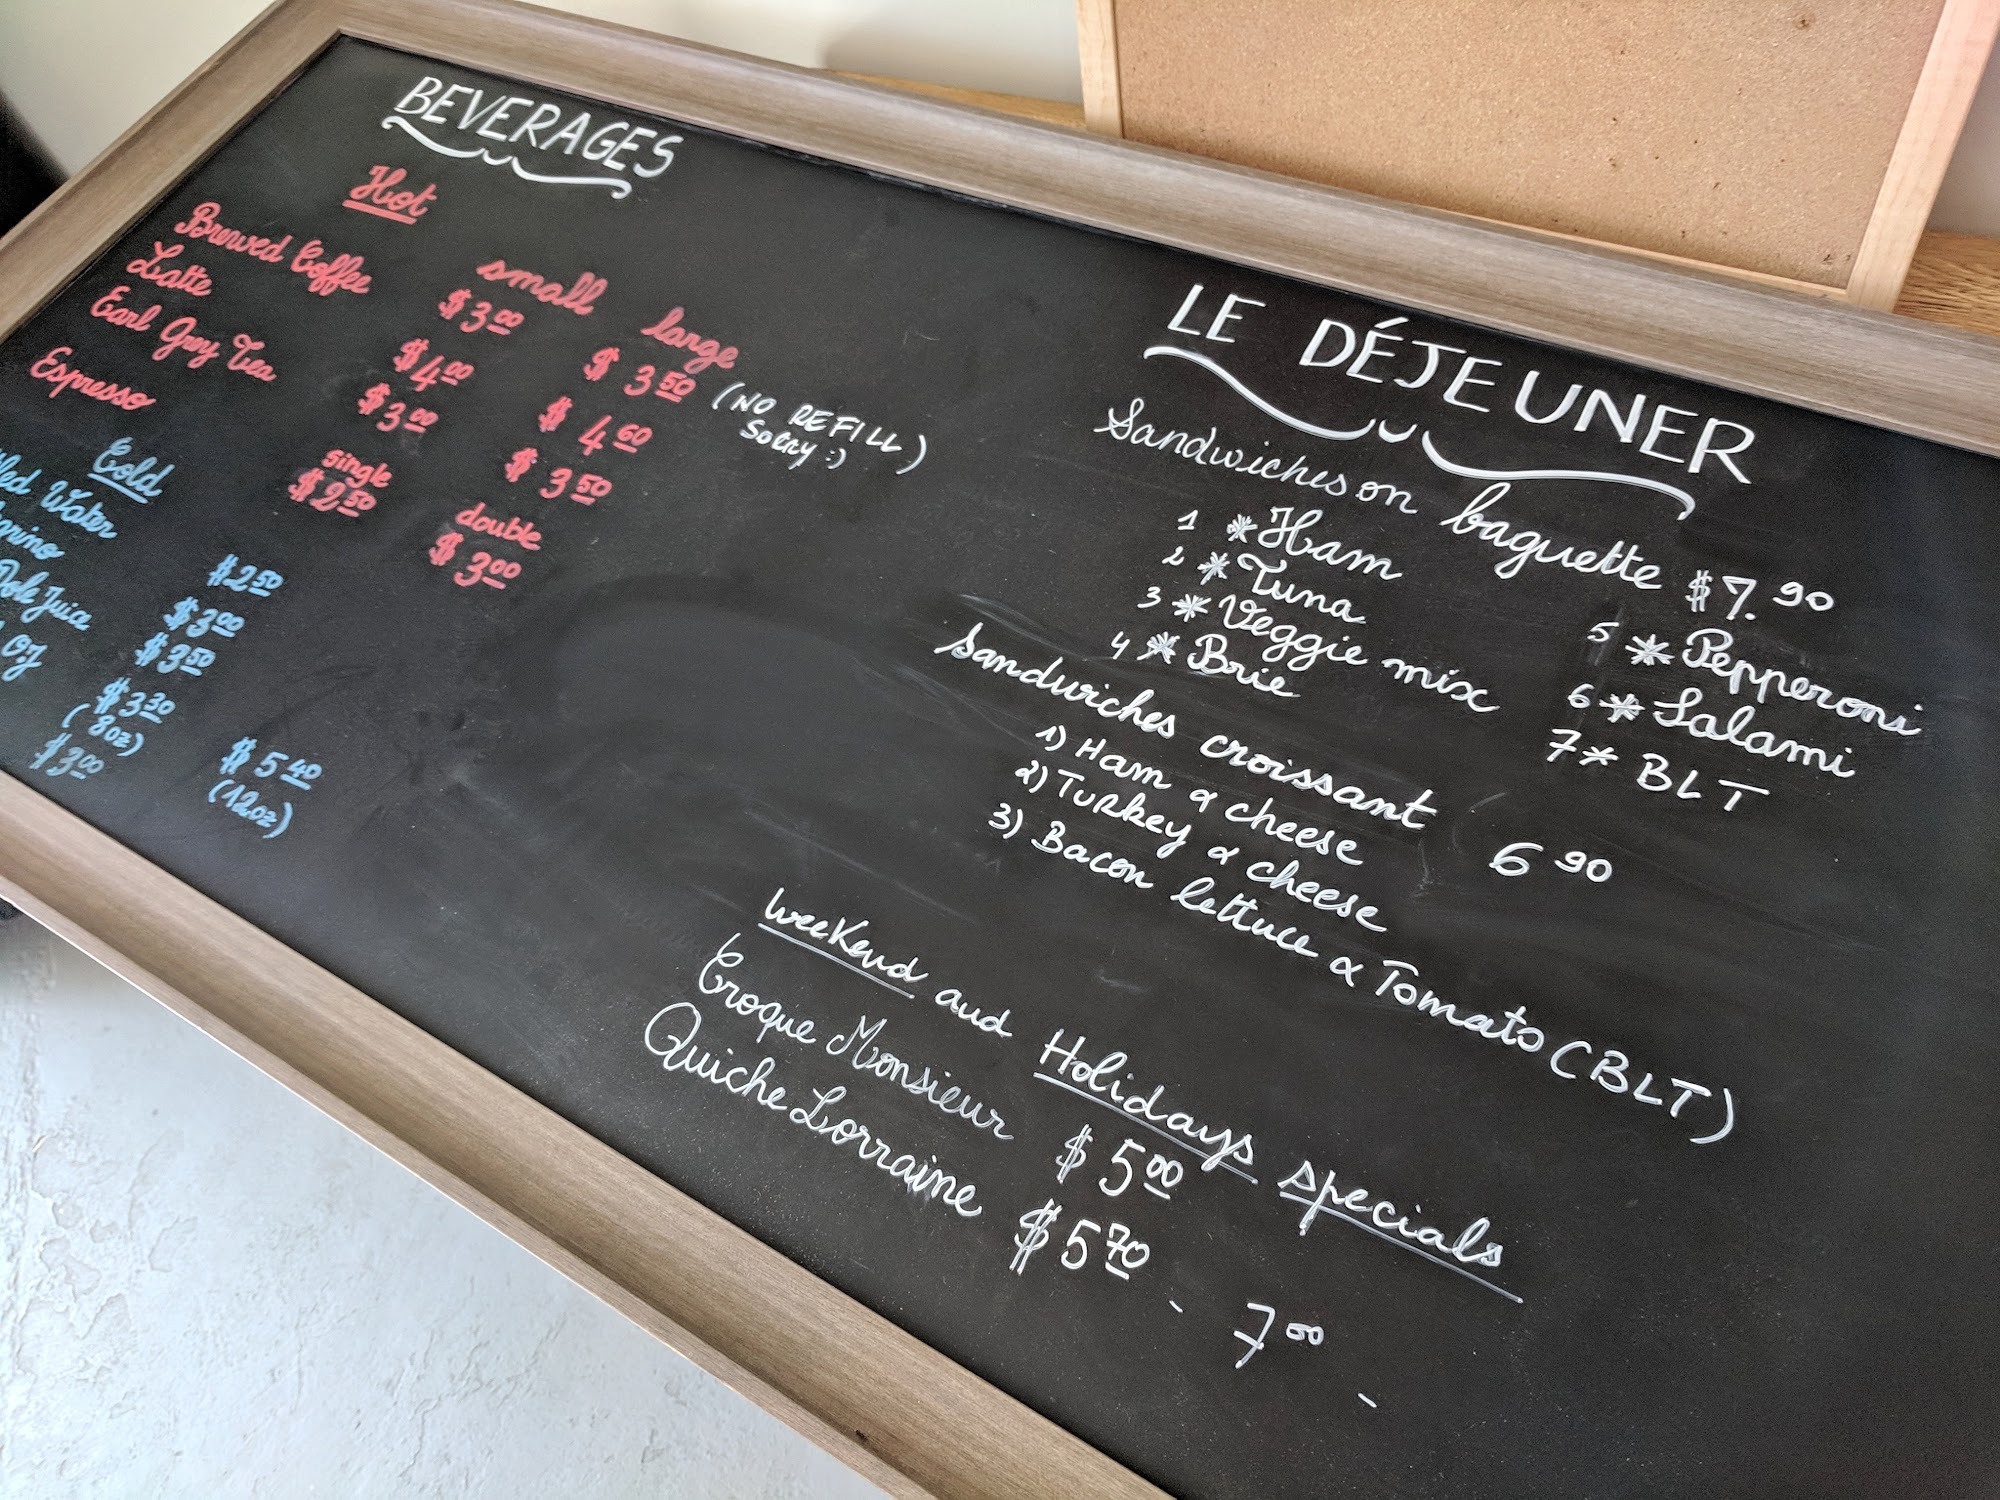 BEVERAGES
Hot
small large
Brewed Coffee $3.00 $3.50 (NO REFILL)
Sorry :)
Latte $4.00 $4.60
Earl Grey Tea $3.00 $3.50
single double
Espresso $2.50 $3.00
Cold
Water $2.50
$3.00
Dole Juice $3.50
OJ $3.30 $5.40
(8oz) (12oz)
$3.00
LE DÉJEUNER
Sandwiches on baguette $7.90
1 * Ham
2 * Tuna
3 * Veggie mix
4 * Brie
5 * Pepperoni
6 * Salami
7 * BLT
Sandwiches croissant 6.90
1) Ham & cheese
2) Turkey & cheese
3) Bacon lettuce & Tomato (BLT)
Weekend and Holidays specials
Croque Monsieur $5.00
Quiche Lorraine $5.70 - 7.00 -